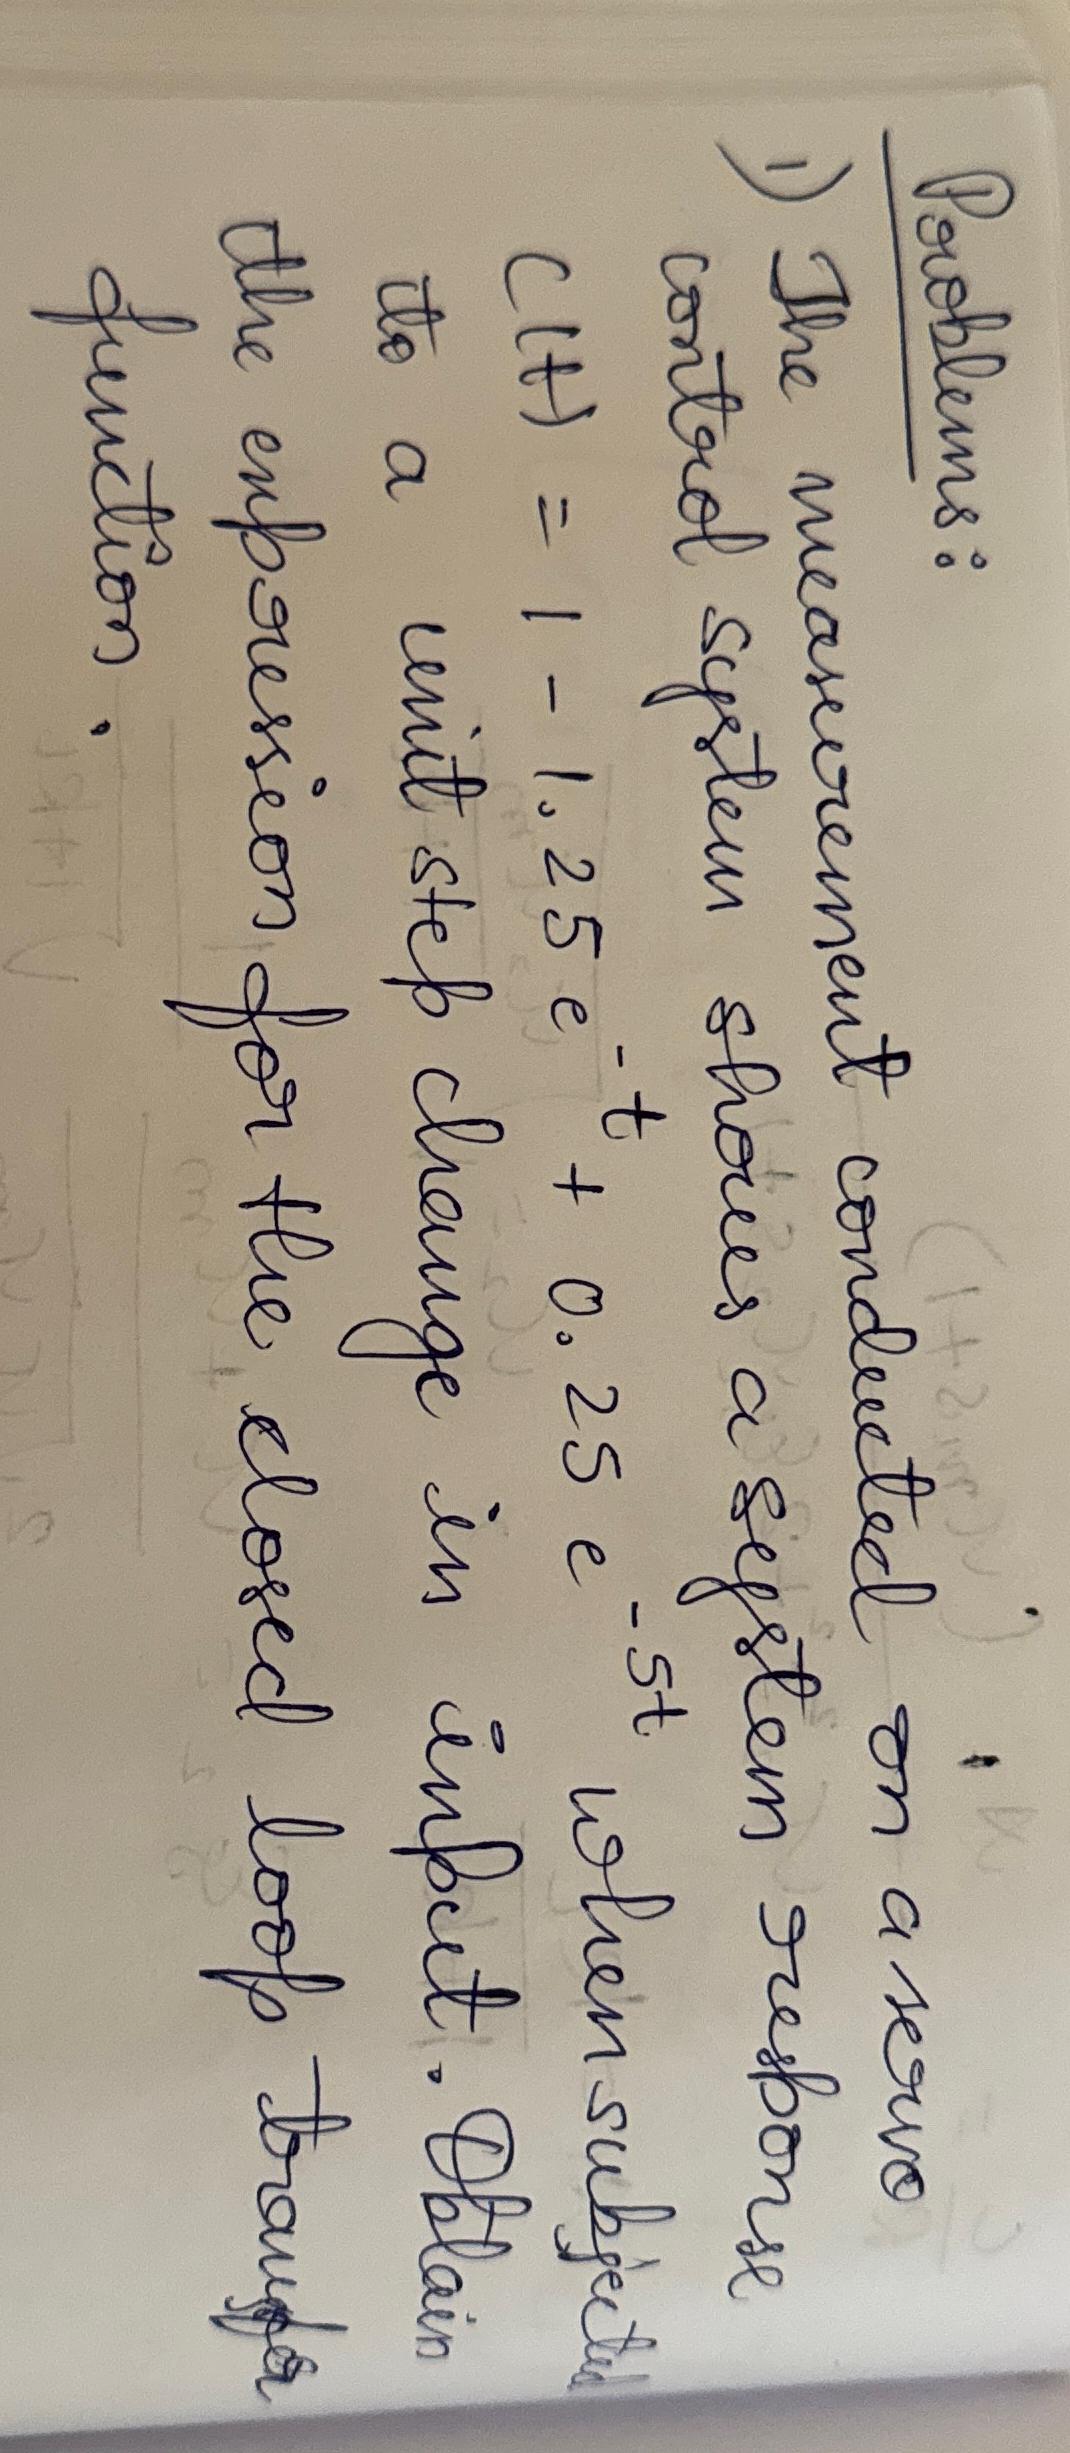 Problems:
1) The measurement conducted on a servo
control system shows a system response
C(t) = 1 - 1.25 e^-t + 0.25 e^-5t when subjected
to a unit step change in input. Obtain
the expression for the closed loop transfer
function.